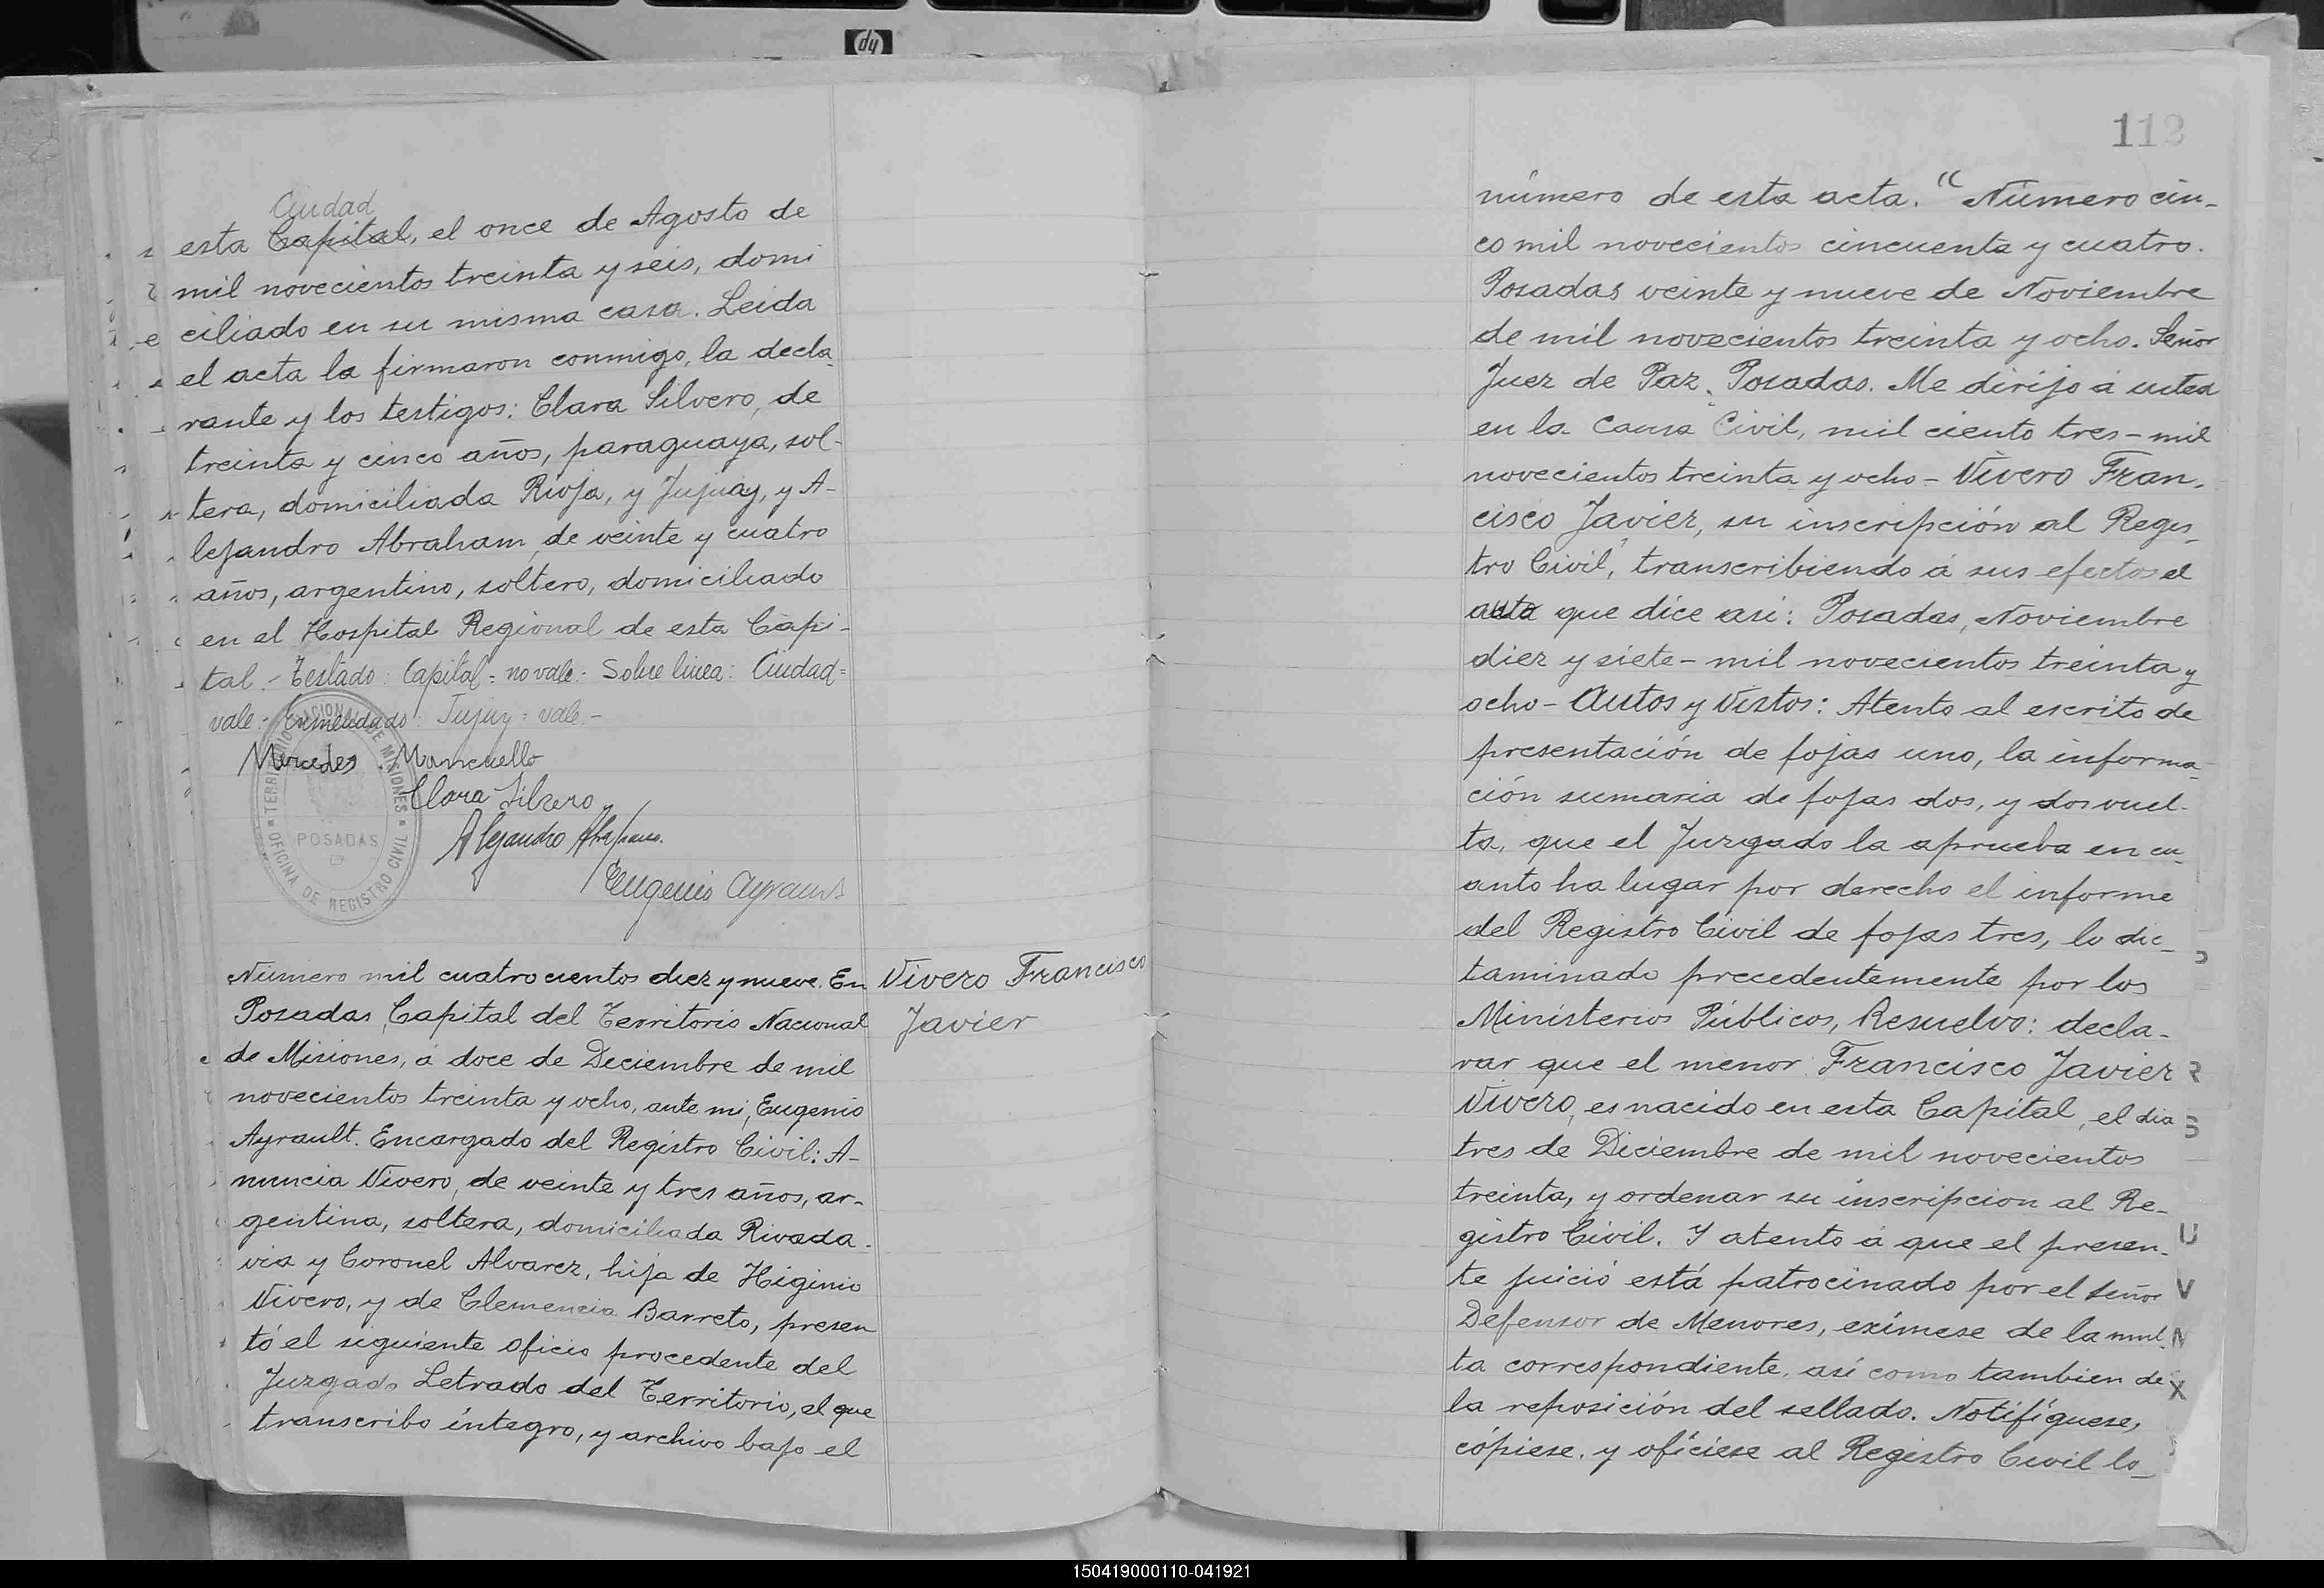 hp
Ciudad
esta Capital, el once de Agosto de
mil novecientos treinta y seis, domi
ciliado en su misma casa. Leida
el acta la firmaron conmigo, la decla
rante y los testigos: Clara Silvero, de
treinta y cinco años, paraguaya, sol-
tera, domiciliada Rioja, y Jujuy, y A-
lejandro Abraham, de veinte y cuatro
años, argentino, soltero, domiciliado
en el Hospital Regional de esta Capi-
tal.- Testado: Capital = no vale.- Sobre linea: Ciudad =
vale.- Enmendado: Jujuy = vale.-
TERRITORIO NACIONAL DE MISIONES
POSADAS
OFICINA DE REGISTRO CIVIL
Mercedes Mancuello
Clara Silvero
Alejandro
Eugenio Ayrault
Número mil cuatrocientos diez y nueve. En
Posadas, Capital del Territorio Nacional
de Misiones, á doce de Deciembre de mil
novecientos treinta y ocho, ante mi, Eugenio
Ayrault. Encargado del Registro Civil: A-
nuncia Vivero, de veinte y tres años, ar-
gentina, soltera, domiciliada Rivada-
via y Coronel Alvarez, hija de Higinio
Vivero, y de Clemencia Barreto, presen
tó el siguiente oficio procedente del
Juzgado Letrado del Territorio, el que
transcribo íntegro, y archivo bajo el
Vivero Francisco
Javier
112
número de esta acta. "Número cin-
co mil novecientos cincuenta y cuatro.
Posadas veinte y nueve de Noviembre
de mil novecientos treinta y ocho. Señor
Juez de Paz. Posadas. Me dirijo á usted
en la Causa Civil, mil ciento tres - mil
novecientos treinta y ocho - Vivero Fran-
cisco Javier, su inscripción al Regis-
tro Civil", transcribiendo á sus efectos el
auto que dice asi: Posadas, Noviembre
diez y siete - mil novecientos treinta y
ocho - Autos y Vistos: Atento al escrito de
presentación de fojas uno, la informa-
ción sumaria de fojas dos, y dos vuel-
ta, que el Juzgado la aprueba en cu-
anto ha lugar por derecho el informe
del Registro Civil de fojas tres, lo dic-
taminado precedentemente por los
Ministerios Públicos, Resuelvo: decla-
rar que el menor Francisco Javier
Vivero, es nacido en esta Capital, el dia
tres de Diciembre de mil novecientos
treinta, y ordenar su inscripcion al Re-
gistro Civil. Y atento á que el presen-
te juició está patrocinado por el señor
Defensor de Menores, exímese de la mul-
ta correspondiente, así como tambien de
la reposición del sellado. Notifíquese,
cópiese, y ofíciese al Registro Civil lo-
R
S
U
V
N
X
150419000110-041921